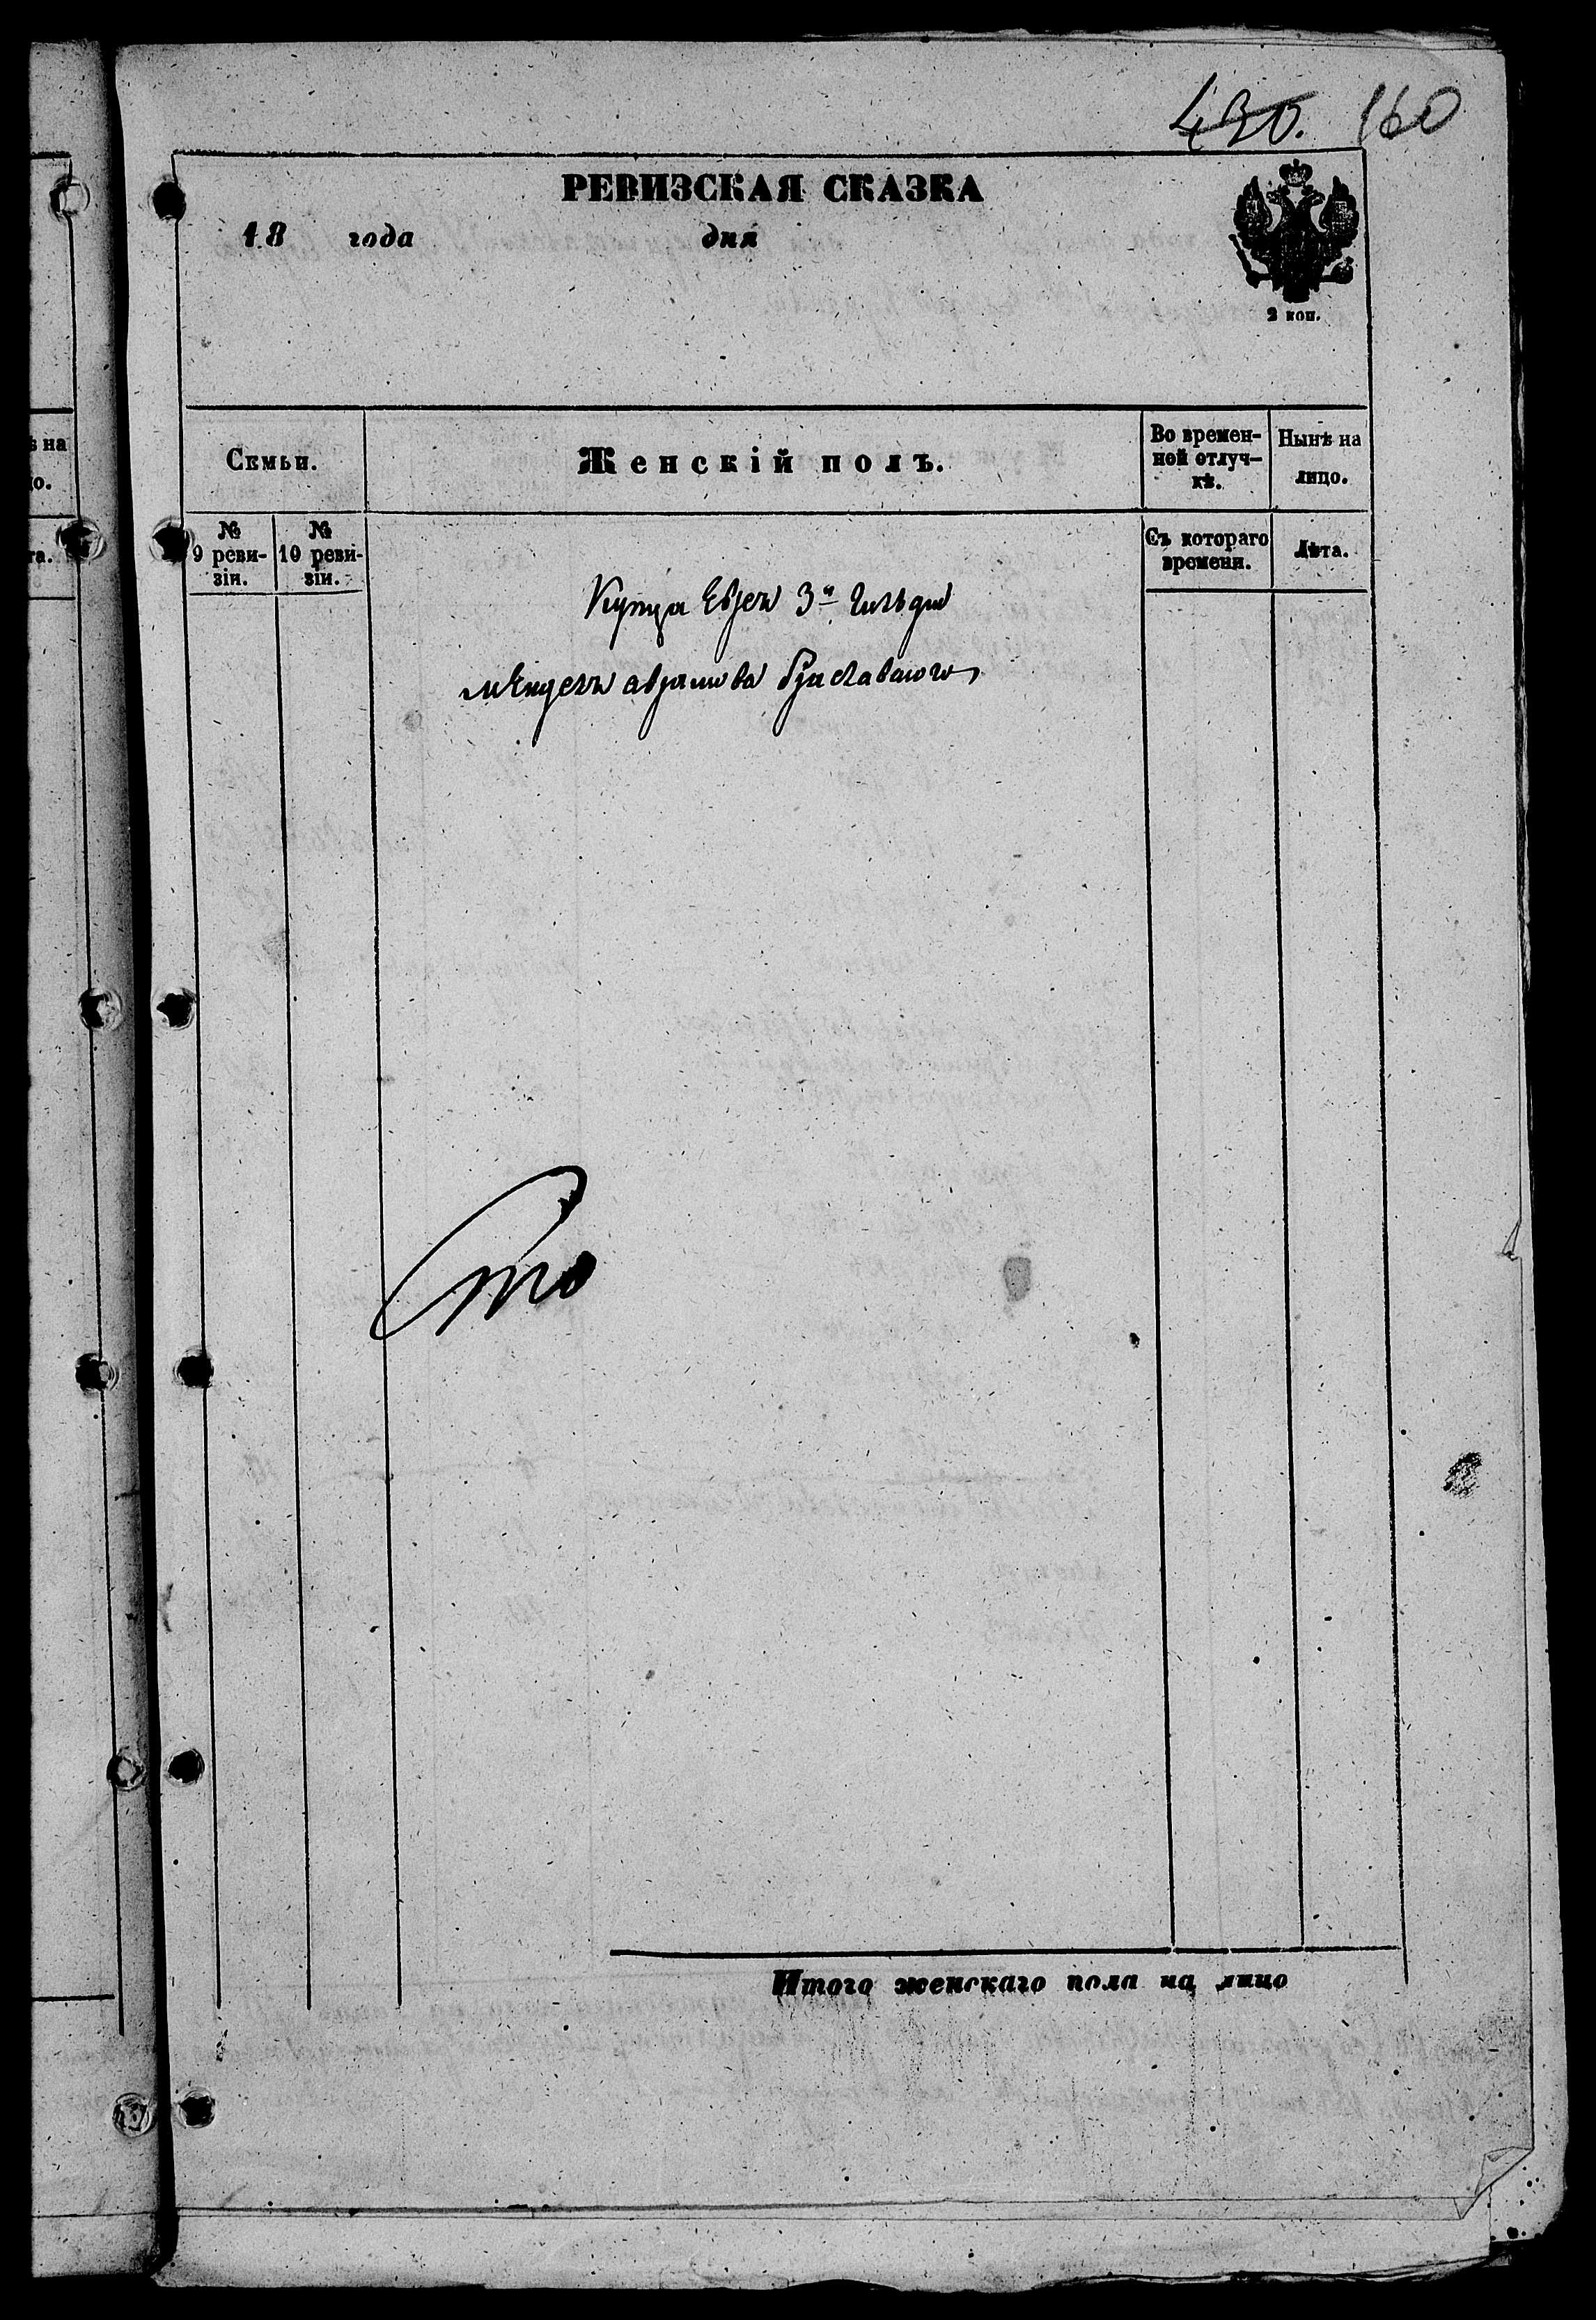 430. 160
РЕВИЗСКАЯ СКАЗКА
18 года дня
2 коп.
Семьи.
Женскій полъ.
Во времен-
ной отлуч-
кѣ.
Нынѣ на
лицо.
№
9 реви-
зіи.
№
10 реви-
зіи.
Съ котораго
времени.
Лѣта.
Купца Еврея 3й гильдіи
менделя аврамова
Сто
Итого женскаго пола на лицо
ѣ на
о.
та.